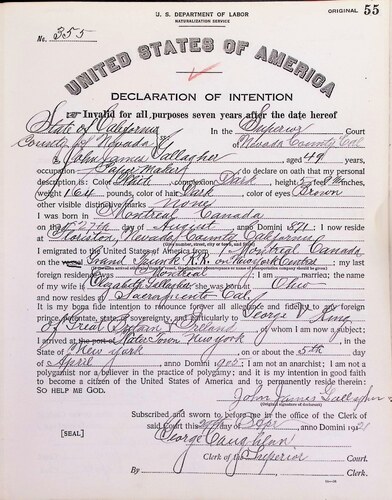 U. S. DEPARTMENT OF LABOR
NATURALIZATION SERVICE
ORIGINAL 55
No. 355
UNITED STATES OF AMERICA
DECLARATION OF INTENTION
Invalid for all purposes seven years after the date hereof
State of California In the Superior Court
County of Nevada of Nevada County Cal
I, John James Gallagher, aged 49 years,
occupation Paper Maker, do declare on oath that my personal
description is: Color White, complexion Dark, height 5 feet inches,
weight 164 pounds, color of hair Dark, color of eyes Brown
other visible distinctive marks None
I was born in Montreal Canada
on the 27th day of August, anno Domini 1871; I now reside
at Floriston, Nevada County California
I emigrated to the United States of America from Montreal Canada
on the Grand Trunk R.R. or New York Central; my last
foreign residence was Montreal; I am married; the name
of my wife is Elizabeth Gallagher; she was born at Ohio
and now resides at Sacramento Cal.
It is my bona fide intention to renounce forever all allegiance and fidelity to any foreign
prince, potentate, state, or sovereignty, and particularly to George V King
of Great Britain & Ireland, of whom I am now a subject;
I arrived at the port of New York, in the
State of New York, on or about the 5th day
of April, anno Domini 1905; I am not an anarchist; I am not a
polygamist nor a believer in the practice of polygamy; and it is my intention in good faith
to become a citizen of the United States of America and to permanently reside therein:
SO HELP ME GOD.
John James Gallagher
Subscribed and sworn to before me in the office of the Clerk of
said Court this day of Sept, anno Domini 1921
[SEAL]
Clerk of the Superior Court.
By, Clerk.